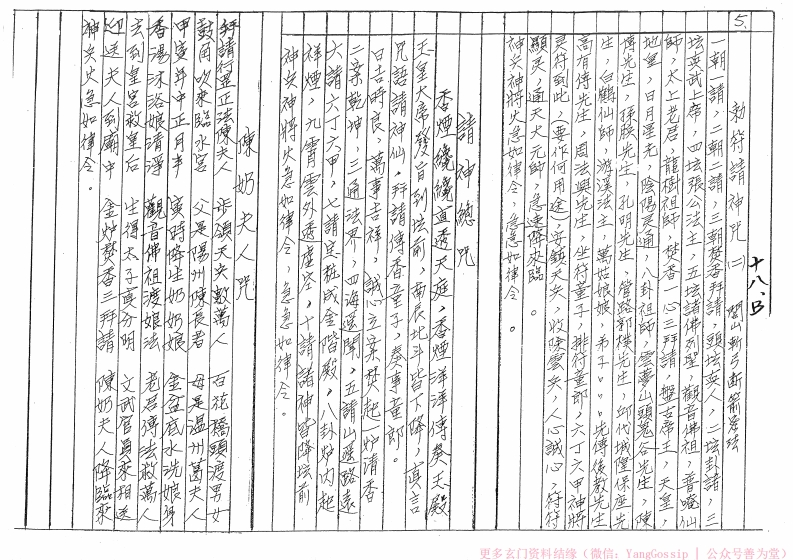 5.
十八、B
勅符請神咒 (二) 閭山斬弓斷箭签法
一朝一請，二朝二請，三朝焚香拜請，頭坛英人，二坛卦請，三
坛真武上帝，四坛張公法主，五坛諸佛列聖，觀音佛祖，普唵仙
師，太上老君，龍樹祖師，焚香一心三拜請，盤古帝王，天皇，
地皇，日月星光，陰陽灵通，八卦祖師，雲夢山頭鬼谷先生，陳
傅先生，孫臏先生，孔明先生，管路郭樸先生，邱代城隍保座先
生，白鶴仙師，游溪法主，萬姑娘娘，弟子。。。先傳後教先生
高有傳先生，周法興先生，坐符童子，排符童郎，六丁六甲神將
灵符到此，(要作何用途)，安鎮天兵，收除雲兵，人心誠心，符符
顯灵，通天大元帥，急速降來臨。
神兵神將火急如律令，急急如律令。
請神總咒
香煙繞繞直透天庭，香煙洋洋傳奏玉殿
玉皇大帝發旨到坛前，南辰北斗皆下降，真言
咒語請神仙，拜請傳香童子，奏事童郎。
日吉時良，萬事吉祥，誠心立案焚起一炉清香
二案乾坤，三通法界，四海遥聞，五請山遥路遠
六請六丁六甲，七請忠粧成金階殿，八卦炉内起
祥煙，九霄雲外透虛空，十請諸神皆降坛前
神兵神將火急如律令，急急如律令。
陳奶夫人咒
拜請行罡正法陳夫人 步領天兵數萬人 百花橋頭渡男女
鼓角吹來臨水宮 父是陽州陳長者 母是温州葛夫人
甲寅年中正月半 寅時降生奶奶娘 金盆底水洗娘身
香湯沐浴娘清淨 觀音佛祖渡娘法 老君傳法救萬人
去到皇宮救皇后 生得太子真分明 文武官員來相送
迎送夫人到廟中 金炉焚香三拜請 陳奶夫人降臨來
神兵火急如律令。
更多玄门资料结缘（微信：YangGossip | 公众号善为堂）